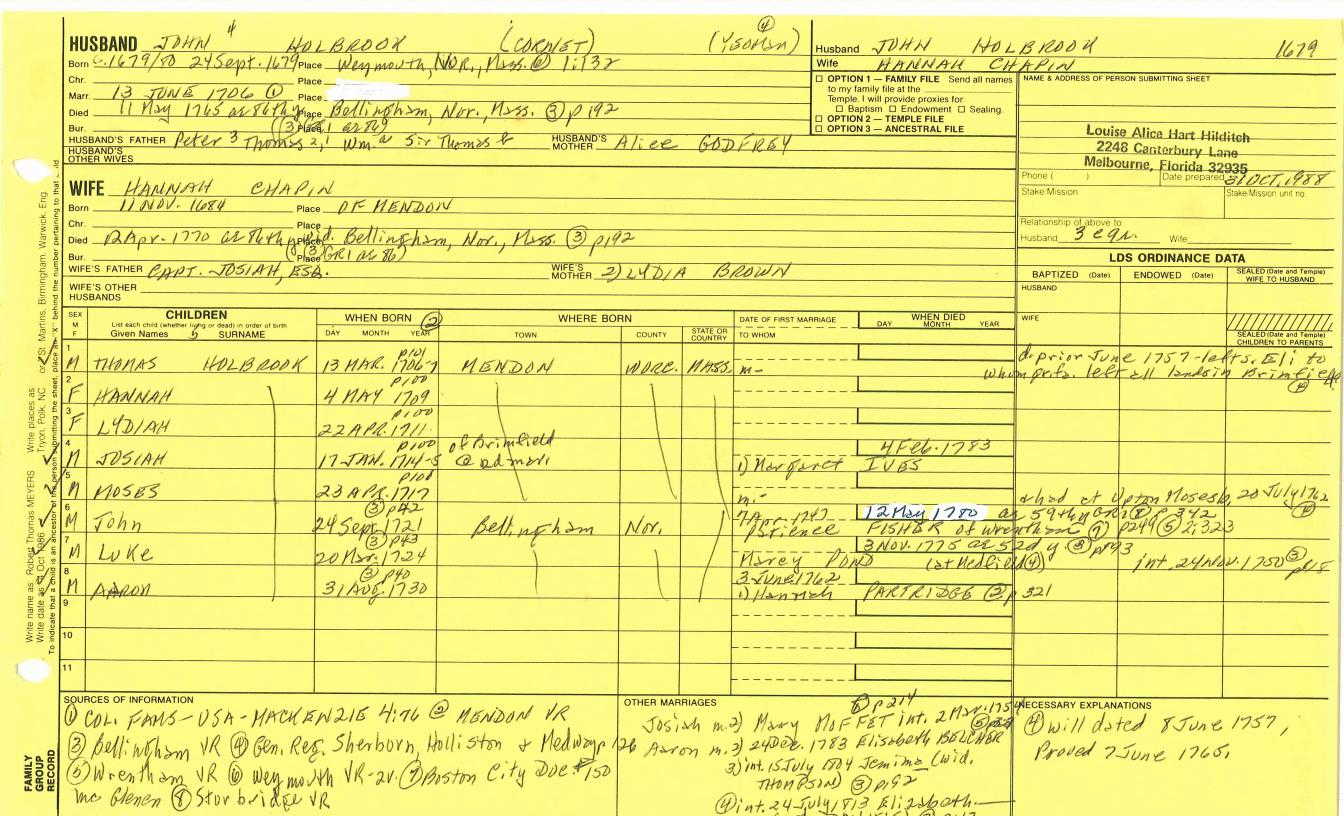 HUSBAND JOHN 4 HOLBROOK (CORNET) (YEOMAN) ④
Born c.1679/80 24 Sept. 1679 Place Weymouth, Nor., Mass. ⑥ 1:132
Chr. Place
Marr. 13 JUNE 1706 ① Place
Died 11 May 1765 ae 86th y Place Bellingham, Nor., Mass. ③ p192
Bur. Place
HUSBAND'S FATHER Peter 3 Thomas 2, 1 Wm. Sir Thomas HUSBAND'S MOTHER Alice GODFREY
HUSBAND'S OTHER WIVES
WIFE HANNAH CHAPIN
Born 11 NOV. 1684 Place OF MENDON
Chr. Place
Died 12 Apr. 1770 ae 86th y Place Bellingham, Nor., Mass. ③ p192
Bur. (③ GR1 ae 86) Place
WIFE'S FATHER CAPT. JOSIAH, ESQ. WIFE'S MOTHER 2) LYDIA BROWN
WIFE'S OTHER HUSBANDS
Husband JOHN HOLBROOK 1679
Wife HANNAH CHAPIN
OPTION 1 — FAMILY FILE Send all names
to my family file at the
Temple. I will provide proxies for
Baptism Endowment Sealing.
OPTION 2 — TEMPLE FILE
OPTION 3 — ANCESTRAL FILE
NAME & ADDRESS OF PERSON SUBMITTING SHEET
Louise Alice Hart Hilditch
2248 Canterbury Lane
Melbourne, Florida 32935
Phone ( ) Date prepared 31 OCT. 1988
Stake Mission Stake Mission unit no.
Relationship of above to
Husband Wife
LDS ORDINANCE DATA
BAPTIZED (Date) ENDOWED (Date) SEALED (Date and Temple) WIFE TO HUSBAND
HUSBAND
WIFE
SEALED (Date and Temple) CHILDREN TO PARENTS
SEX M F
CHILDREN
List each child (whether living or dead) in order of birth
Given Names 5 SURNAME
WHEN BORN ②
DAY MONTH YEAR
WHERE BORN
TOWN COUNTY STATE OR COUNTRY
DATE OF FIRST MARRIAGE
TO WHOM
WHEN DIED
DAY MONTH YEAR
1 M THOMAS HOLBROOK p101 13 MAR. 1706-7 MENDON WORC. MASS. m- d. prior June 1757 left s. Eli to
whom left all lands in Brimfield ④
2 F HANNAH p100 4 MAY 1709
3 F LYDIAH p100 22 APR. 1711
4 M JOSIAH p100 17 JAN. 1714-5 of Brimfield @ ad mari 1) Margaret IVES 4 Feb. 1783
5 M MOSES p100 23 APR. 1717 m.-
6 M John ③ p42 24 Sept 1721 Bellingham Nor. 1747 Patience FISHER of Wrentham ⑦ p249 ⑤ 2:323 12 May 1780 ae 59th y GR1 ⑧ p. 342
7 M LUKE ③ p43 20 Mar. 1724 Marcy POND (at Medfield ④) 3 NOV. 1775 ae 52d y ③ p193 int. 24 Nov. 1750 ③
8 M AARON ③ p40 31 Aug. 1730 3 June 1762 1) Hannah PARTRIDGE ② p 321
9
10
11
SOURCES OF INFORMATION
① COL. FAMS-USA-MACKENZIE 4:76 ② MENDON VR
③ Bellingham VR ④ Gen. Reg. Sherborn, Holliston & Medway p 126
⑤ Wrentham VR ⑥ Weymouth VR-2v. ⑦ Boston City Doc. #150
Mc Glenen ⑧ Sturbridge VR
OTHER MARRIAGES
⑧ p214
Josiah m. 2) Mary MOFFET int. 2 Mar. 1754
Aaron m. 2) 24 Dec. 1783 Elisabeth BELCHER
3) int. 15 July 1804 Jemima (wid.
THOMPSON) ③ p192
④ int. 24 July 1813 Elizabeth
NECESSARY EXPLANATIONS
④ Will dated 8 June 1757,
Proved 7 June 1765.
FAMILY GROUP RECORD
Write name as Robert Thomas MEYERS Write places as Tryon, Polk, NC or St. Martins, Birmingham, Warwick, Eng.
Write date as 4 Oct 1986